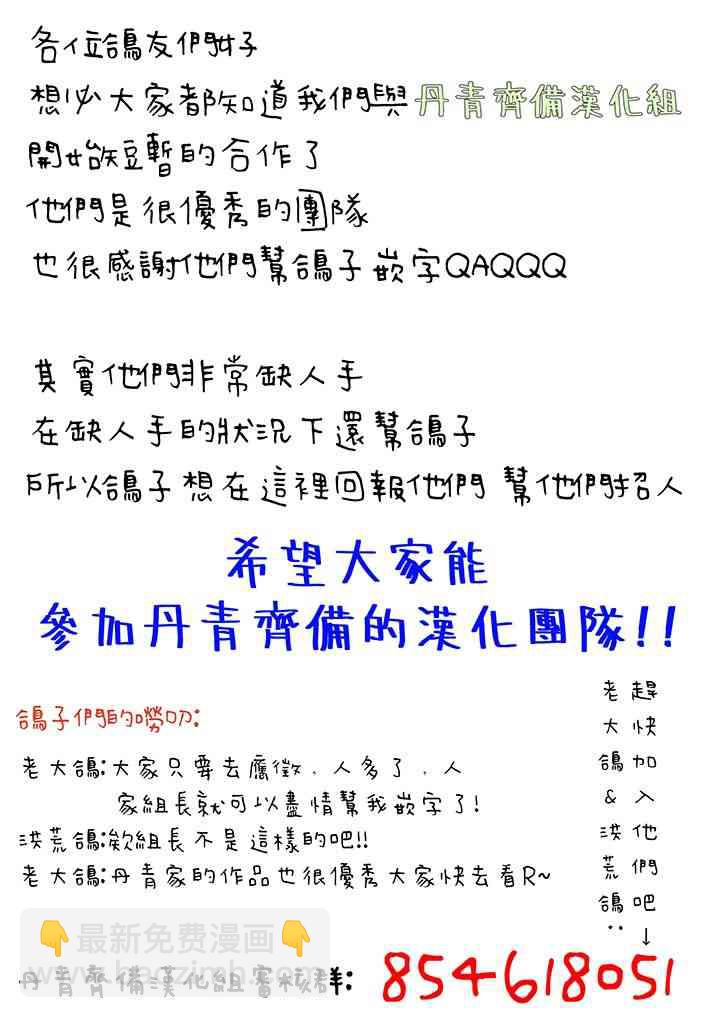 各位鴿友們好
想必大家都知道我們與丹青齊備漢化組
開始短暫的合作了
他們是很優秀的團隊
也很感謝他們幫鴿子嵌字QAQQQ
其實他們非常缺人手
在缺人手的狀況下還幫鴿子
所以鴿子想在這裡回報他們 幫他們招人
希望大家能
參加丹青齊備的漢化團隊!!
鴿子們的嘮叨:
老大鴿:大家只要去應徵，人多了，人
家組長就可以盡情幫我嵌字了!
洪荒鴿:欸組長不是這樣的吧!!
老大鴿:丹青家的作品也很優秀大家快去看R~
趕快加入他們吧↓
老大鴿&洪荒鴿:
最新免费漫画
丹青齊備漢化組審核群: 854618051